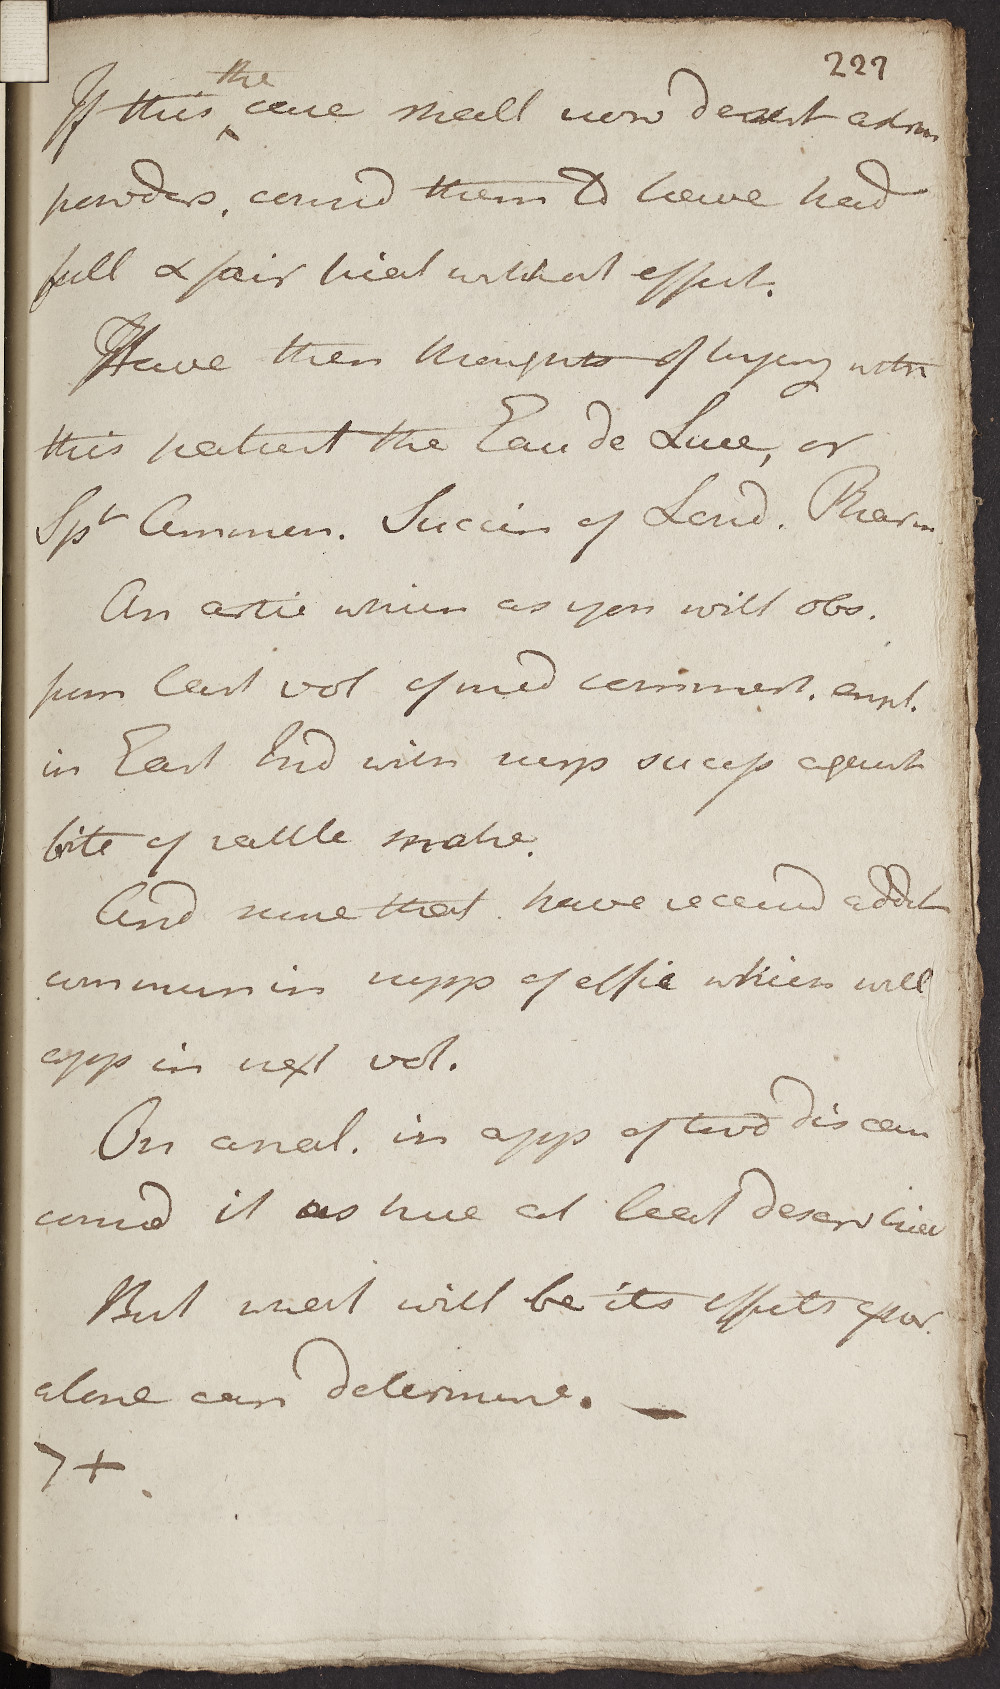 227
If this the case shall now desert adm
powders, consid them to have had
full & fair trial without effect.
Have then thoughts of trying with
this patient the Eau de Luce, or
Spt Ammon. Succin of Lond. Pharm
An artic which as you will obs.
from last vol of med comment. empl.
in East Ind with success against
bite of rattle snake.
And since that have received addit
communin of effic which will
app in next vol.
On anal. in app of two dis can
consid it as here at least deserv trial
But what will be its effects exper.
alone can determine. —
7 +